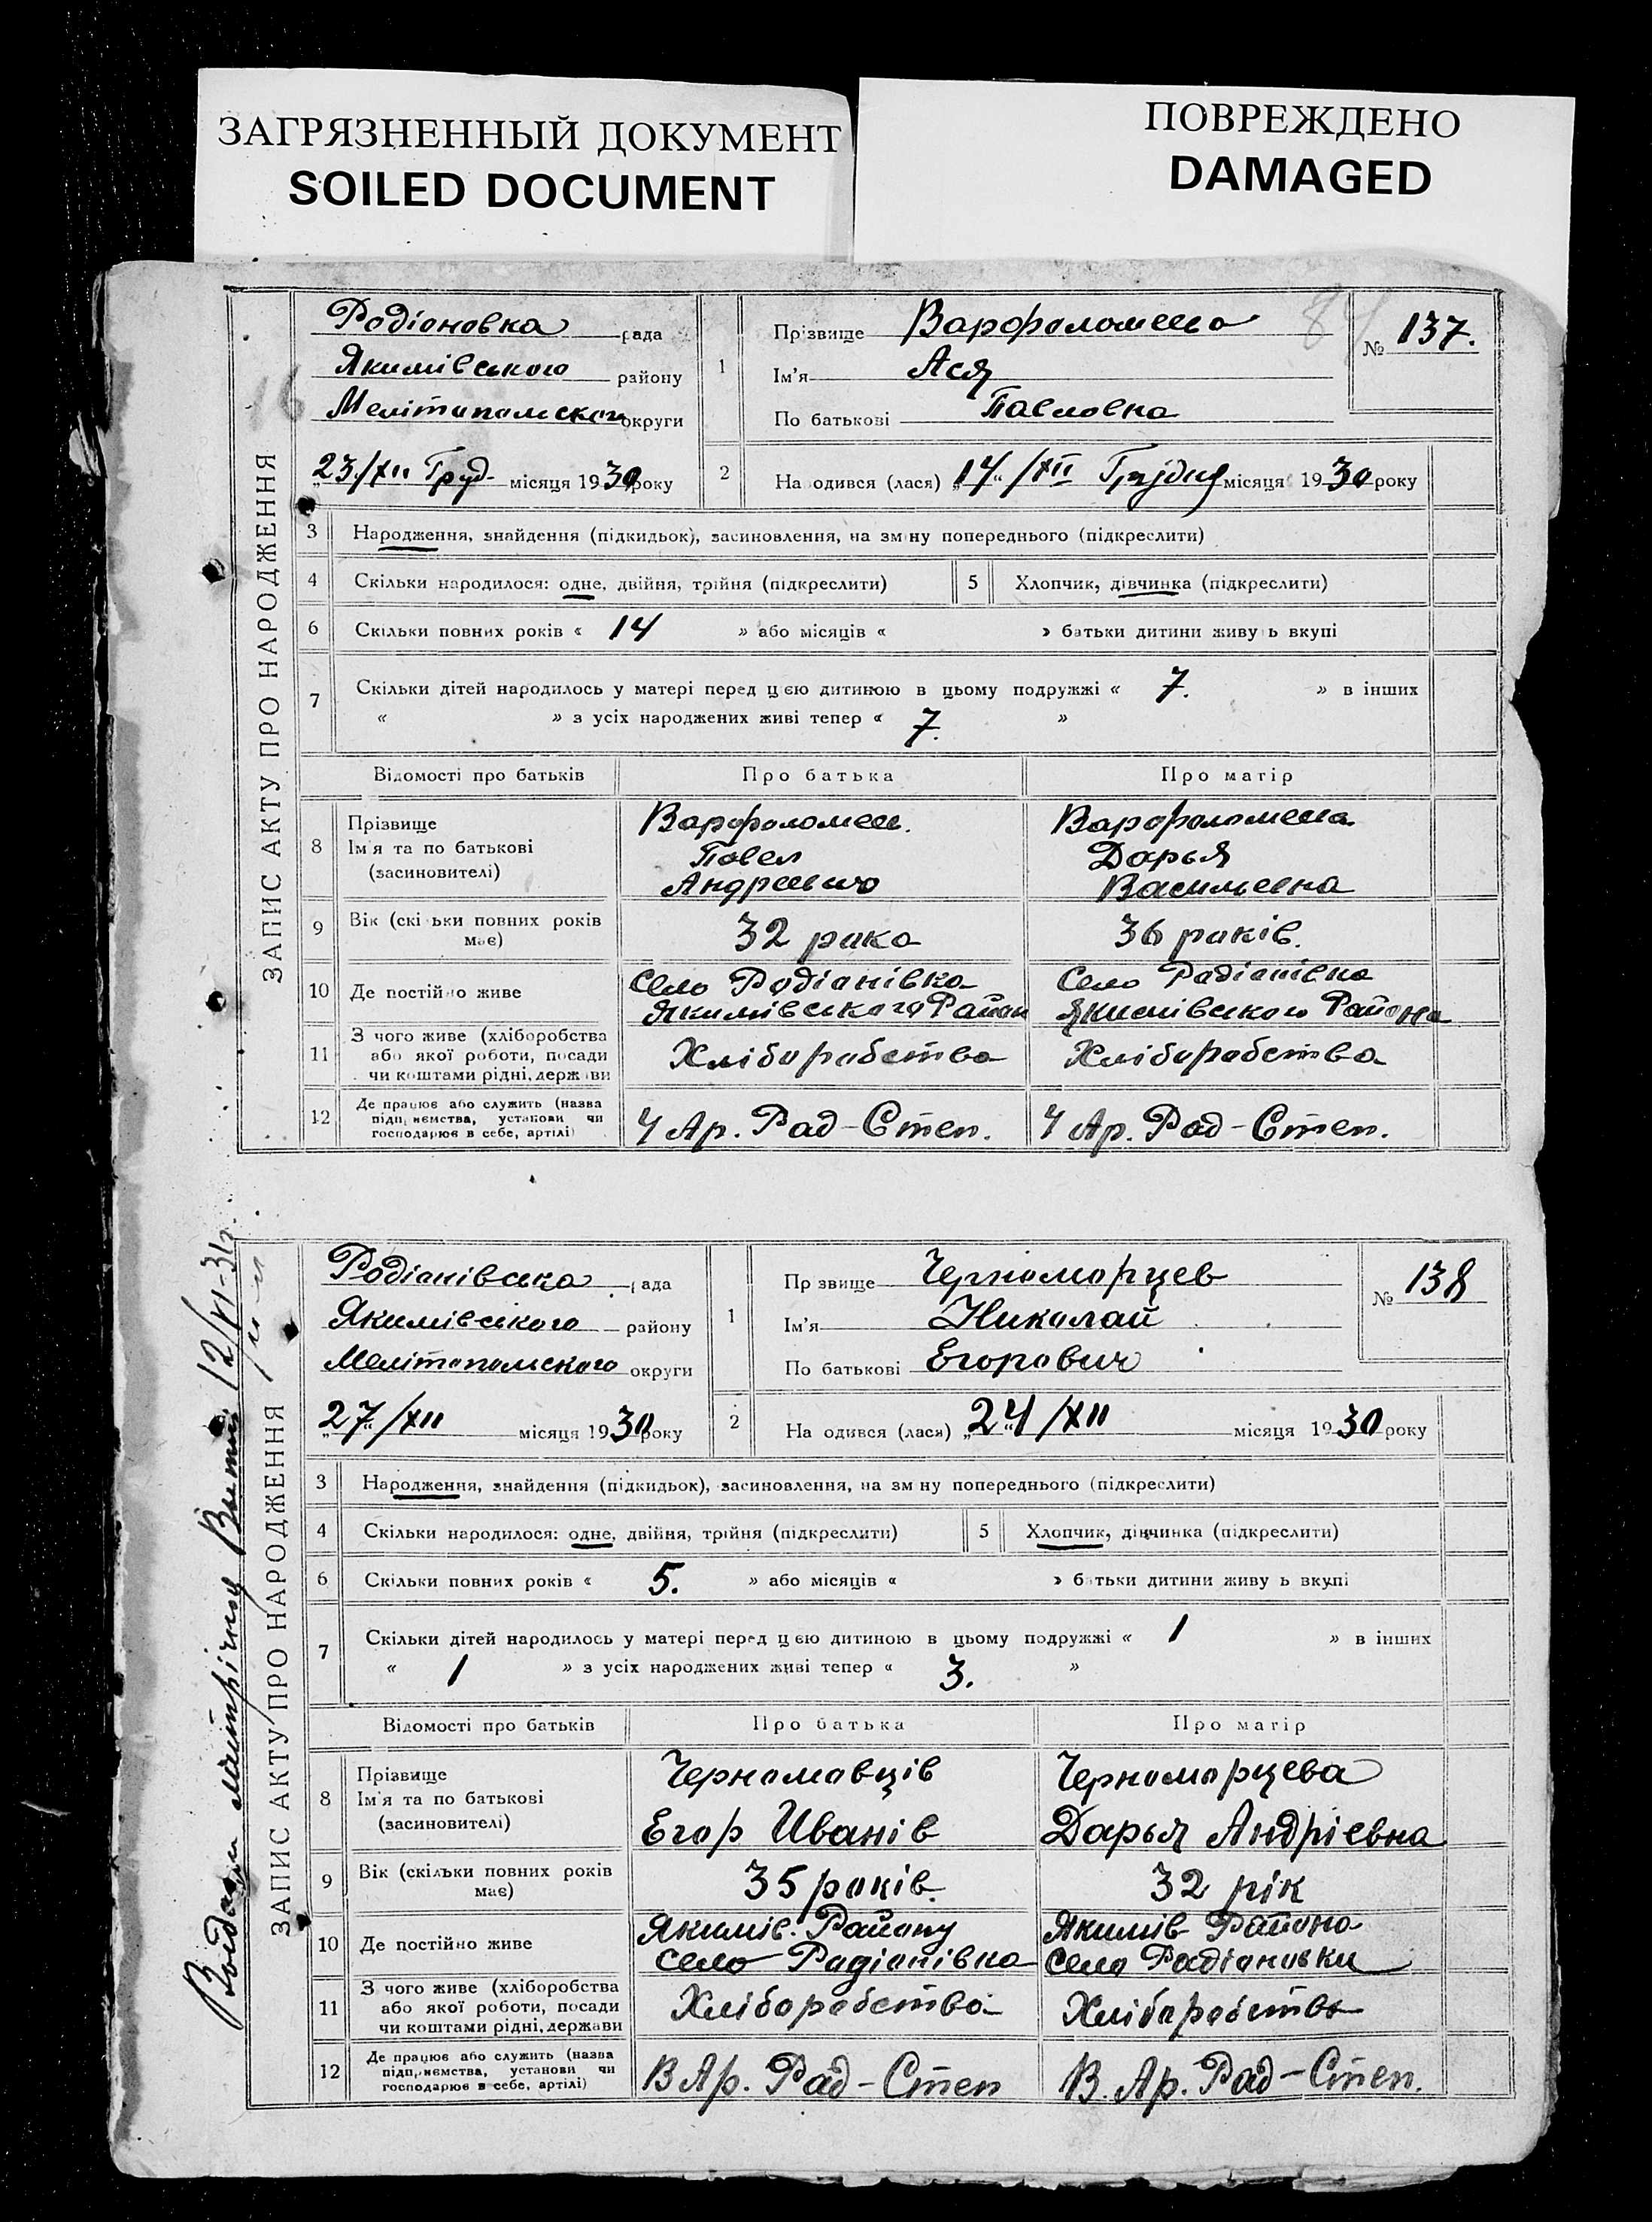 ЗАГРЯЗНЕННЫЙ ДОКУМЕНТ
SOILED DOCUMENT
ПОВРЕЖДЕНО
DAMAGED
ЗАПИС АКТУ ПРО НАРОДЖЕННЯ
16
Родіоновка рада
Якимівського району
Мелітопольского округи
„23„/XII Груд- місяця 1930 року
1
Прізвище Варфоломеева
Ім'я Ася
По батькові Павловна
84
№ 137.
2
На одився (лася) „14„/XII Грудня місяця 1930 року
3 Народження, знайдення (підкидьок), засиновлення, на зм ну попереднього (підкреслити)
4 Скільки народилося: одне, двійня, трійня (підкреслити) 5 Хлопчик, дівчинка (підкреслити)
6 Скільки повних років « 14 » або місяців « » батьки дитини живу ь вкупі
7 Скільки дітей народилось у матері перед цією дитиною в цьому подружжі « 7. » в інших
« » з усіх народжених живі тепер « 7. »
Відомості про батьків Про батька Про матір
8 Прізвище
Ім'я та по батькові
(засиновителі)
Варфоломеев.
Повел
Андреевич
Варфоломеева
Дарья
Васильевна
9 Вік (скі ьки повних років
має)
32 рока
36 років.
10 Де постійно живе
Село Родіанівка
Якимівського Район
Село Радіанівка
Якимівского Района
11 З чого живе (хліборобства
або якої роботи, посади
чи коштами рідні, держави
Хліборобство
Хліборобство
12 Де працює або служить (назва
підприємства, установи чи
господарює в себе, артілі)
У Ар. Рад-Степ.
У Ар. Рад-Степ.
12/VI-36.
ЗАПИС АКТУ ПРО НАРОДЖЕННЯ
Родіанівська рада
Якимівського району
Мелітопольского округи
„27„/XII місяця 1930 року
1
Пр звище Черноморцев
Ім'я Николай
По батькові Егорович
№ 138
2
На одився (лася) „24/XII місяця 1930 року
3 Народження, знайдення (підкидьок), засиновлення, на зм ну попереднього (підкреслити)
4 Скільки народилося: одне, двійня, трійня (підкреслити) 5 Хлопчик, дівчинка (підкреслити)
6 Скільки повних років « 5. » або місяців « » батьки дитини живу ь вкупі
7 Скільки дітей народилось у матері перед цією дитиною в цьому подружжі « 1 » в інших
« 1 » з усіх народжених живі тепер « 3. »
Відомості про батьків Про батька Про матір
8 Прізвище
Ім'я та по батькові
(засиновителі)
Черномовців
Егор Иванів
Черноморцева
Дарья Андрієвна
9 Вік (скільки повних років
має)
35 років.
32 рік
10 Де постійно живе
Якимів. Району
село Радіанівка
Якимів Района
село Радіановки
11 З чого живе (хліборобства
або якої роботи, посади
чи коштами рідні, держави
Хліборобство
Хліборобство
12 Де працює або служить (назва
підприємства, установи чи
господарює в себе, артілі)
В Ар. Рад-Степ
В. Ар. Рад-Степ.